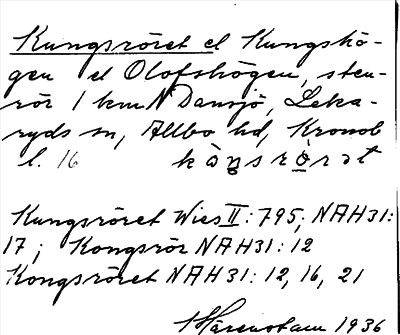 Kungsröret el Kungshö-
gen el Olofshögen, sten-
rör 1 km N Dansjö, Leka-
ryds sn, Allbo hd, Kronob
l. 16 kåŋsrörət
Kungsröret Wies II: 795; NAH 31:
17; Kongsrör NAH 31: 12
Kongsröret NAH 31: 12, 16, 21
1936